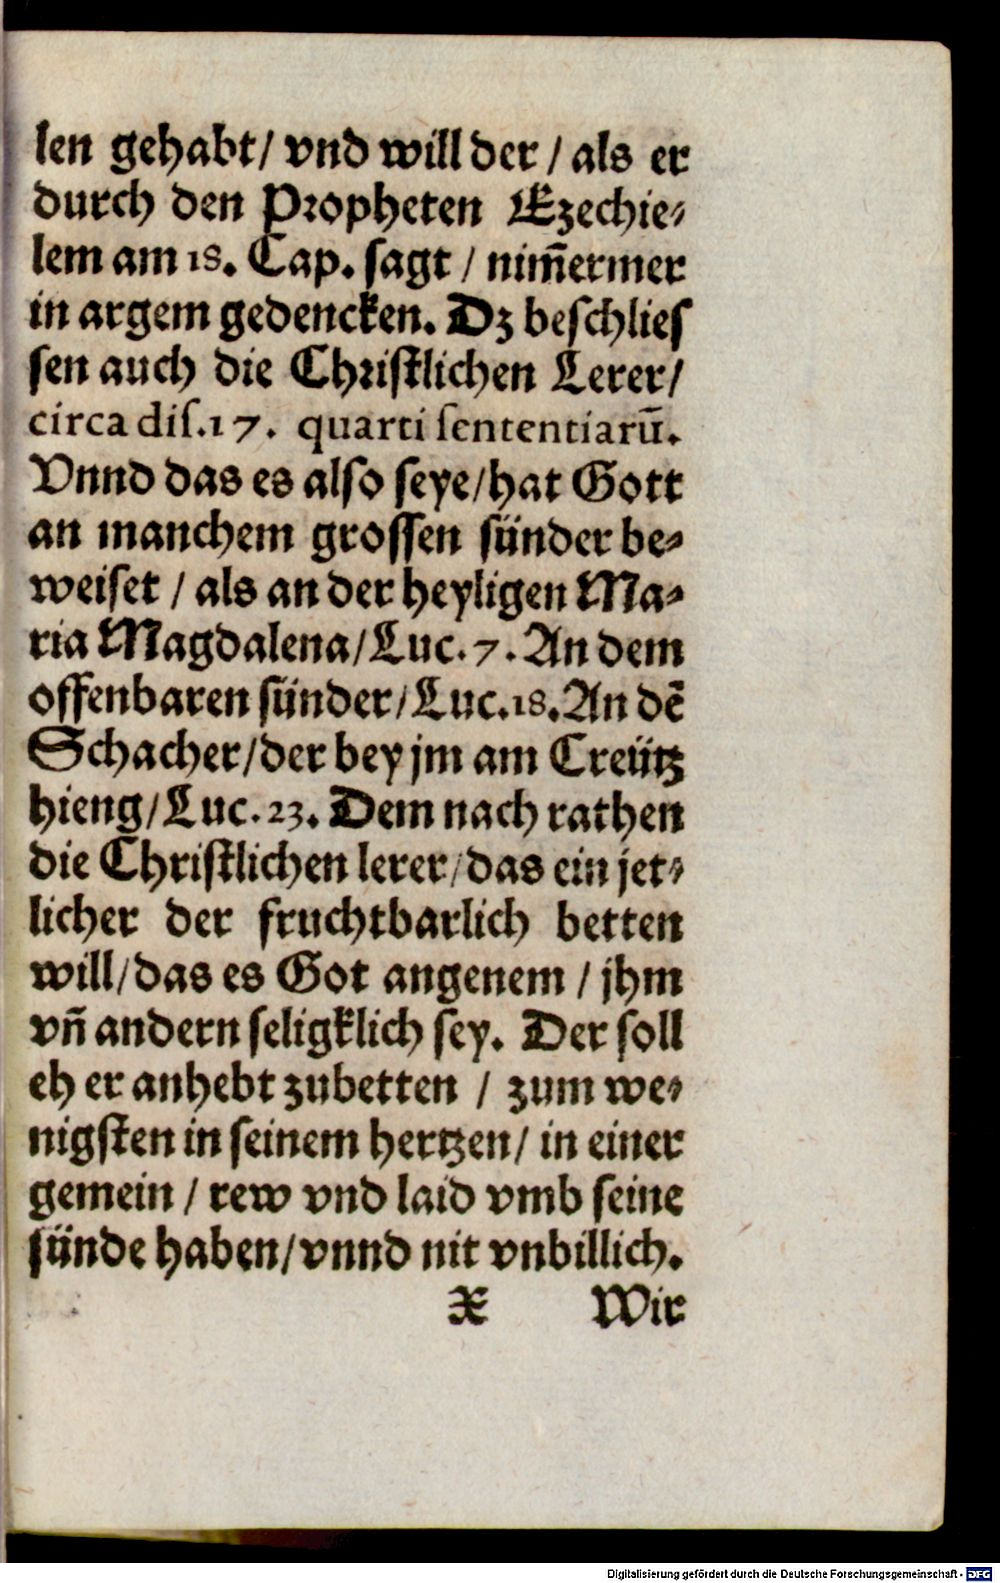 len gehabt/ vnd will der / als er
durch den Propheten Ezechie⸗
lem am 18. Cap. sagt / nim̄ermer
in argem gedencken. Dz beschlies
sen auch die Christlichen Lerer/
circa dis.17. quarti sententiarū.
Vnnd das es also seye/hat Gott
an manchem grossen sünder be⸗
weiset / als an der heyligen Ma⸗
ria Magdalena/Luc. 7. An dem
offenbaren sünder/Luc.18.An dē
Schacher/der bey jm am Creütz
hieng/Luc.23. Dem nach rathen
die Christlichen lerer/das ein jet⸗
licher der fruchtbarlich betten
will/das es Got angenem / jhm
vñ andern seligklich sey. Der soll
eh er anhebt zubetten / zum we⸗
nigsten in seinem hertzen/ in einer
gemein / rew vnd laid vmb seine
sünde haben/vnnd nit vnbillich.
X Wir
Digitalisierung gefördert durch die Deutsche Forschungsgemeinschaft - DFG